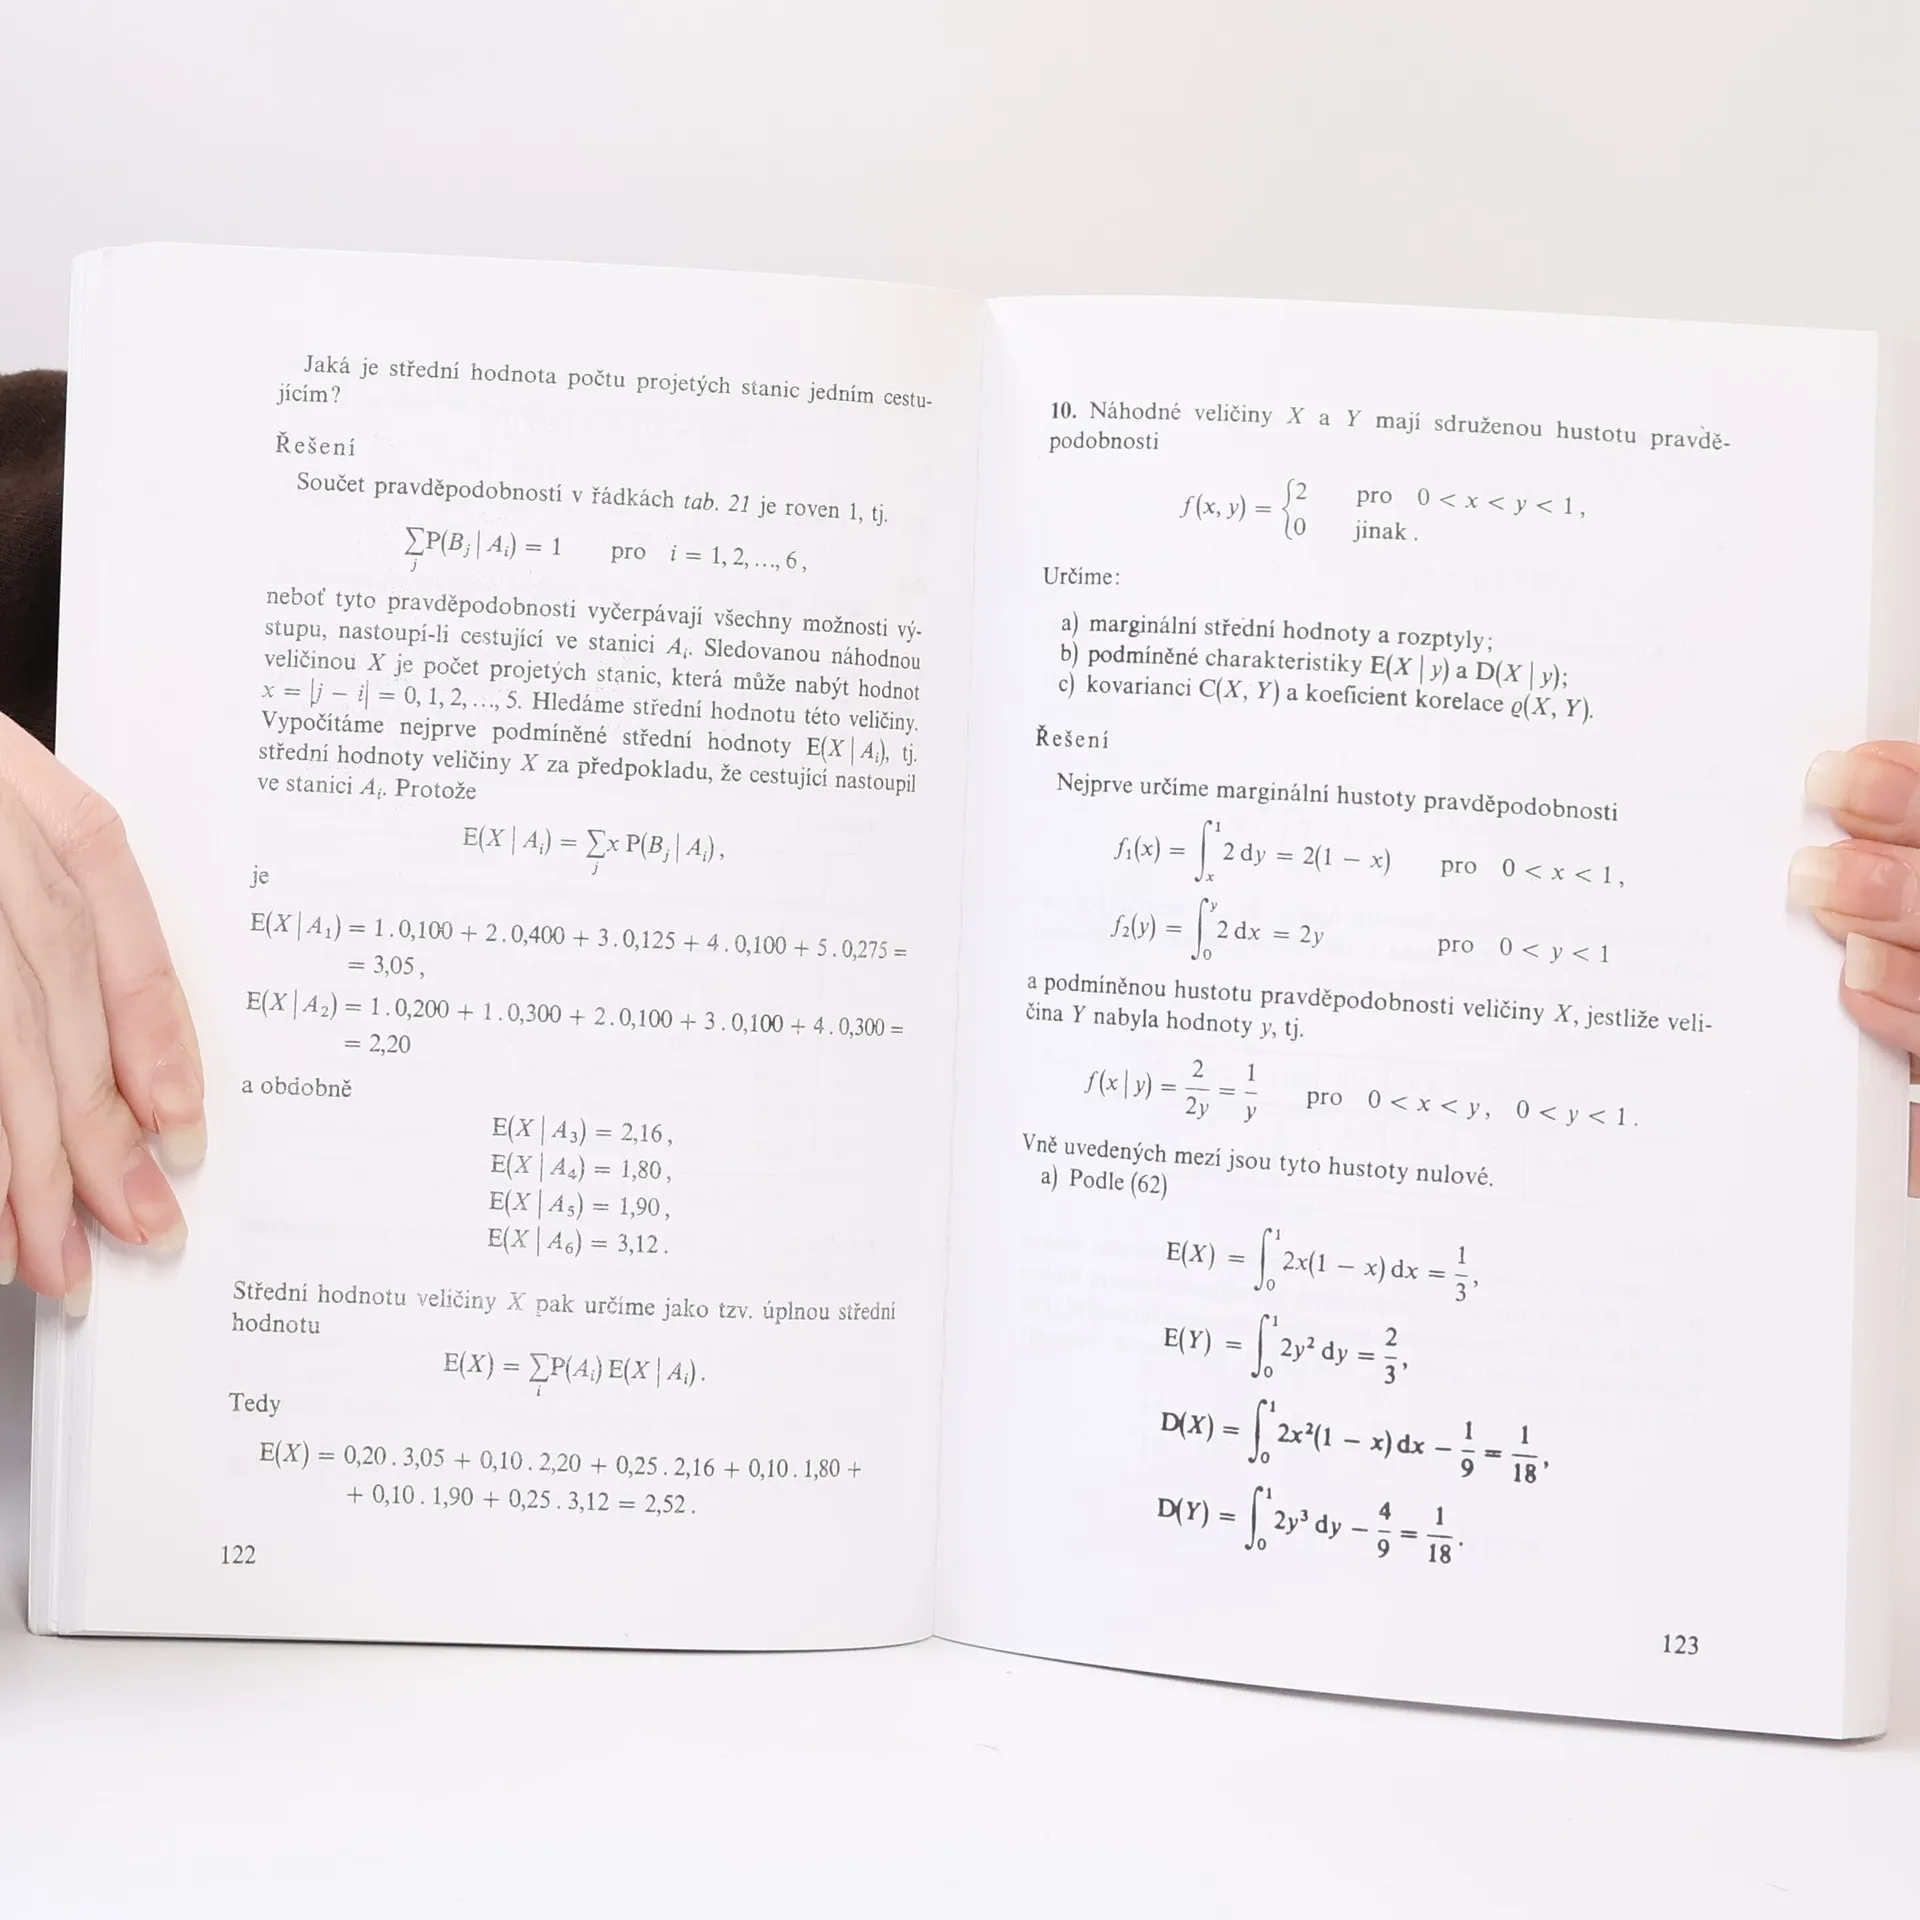 Jaká je střední hodnota počtu projetých stanic jedním cestu-
jícím?
Řešení
Součet pravděpodobností v řádkách tab. 21 je roven 1, tj.
∑_j P(B_j | A_i) = 1 pro i = 1, 2, ..., 6,
neboť tyto pravděpodobnosti vyčerpávají všechny možnosti vý-
stupu, nastoupí-li cestující ve stanici A_i. Sledovanou náhodnou
veličinou X je počet projetých stanic, která může nabýt hodnot
x = |j − i| = 0, 1, 2, ..., 5. Hledáme střední hodnotu této veličiny.
Vypočítáme nejprve podmíněné střední hodnoty E(X | A_i), tj.
střední hodnoty veličiny X za předpokladu, že cestující nastoupil
ve stanici A_i. Protože
E(X | A_i) = ∑_j x P(B_j | A_i),
je
E(X | A_1) = 1 . 0,100 + 2 . 0,400 + 3 . 0,125 + 4 . 0,100 + 5 . 0,275 =
= 3,05,
E(X | A_2) = 1 . 0,200 + 1 . 0,300 + 2 . 0,100 + 3 . 0,100 + 4 . 0,300 =
= 2,20
a obdobně
E(X | A_3) = 2,16,
E(X | A_4) = 1,80,
E(X | A_5) = 1,90,
E(X | A_6) = 3,12.
Střední hodnotu veličiny X pak určíme jako tzv. úplnou střední
hodnotu
E(X) = ∑_i P(A_i) E(X | A_i).
Tedy
E(X) = 0,20 . 3,05 + 0,10 . 2,20 + 0,25 . 2,16 + 0,10 . 1,80 +
+ 0,10 . 1,90 + 0,25 . 3,12 = 2,52.
122
10. Náhodné veličiny X a Y mají sdruženou hustotu pravdě-
podobnosti
f(x, y) = { 2 pro 0 < x < y < 1,
0 jinak.
Určíme:
a) marginální střední hodnoty a rozptyly;
b) podmíněné charakteristiky E(X | y) a D(X | y);
c) kovarianci C(X, Y) a koeficient korelace ϱ(X, Y).
Řešení
Nejprve určíme marginální hustoty pravděpodobnosti
f_1(x) = ∫_x^1 2 dy = 2(1 − x) pro 0 < x < 1,
f_2(y) = ∫_0^y 2 dx = 2y pro 0 < y < 1
a podmíněnou hustotu pravděpodobnosti veličiny X, jestliže veli-
čina Y nabyla hodnoty y, tj.
f(x | y) = 2/2y = 1/y pro 0 < x < y, 0 < y < 1.
Vně uvedených mezí jsou tyto hustoty nulové.
a) Podle (62)
E(X) = ∫_0^1 2x(1 − x) dx = 1/3,
E(Y) = ∫_0^1 2y² dy = 2/3,
D(X) = ∫_0^1 2x²(1 − x) dx − 1/9 = 1/18,
D(Y) = ∫_0^1 2y³ dy − 4/9 = 1/18.
123